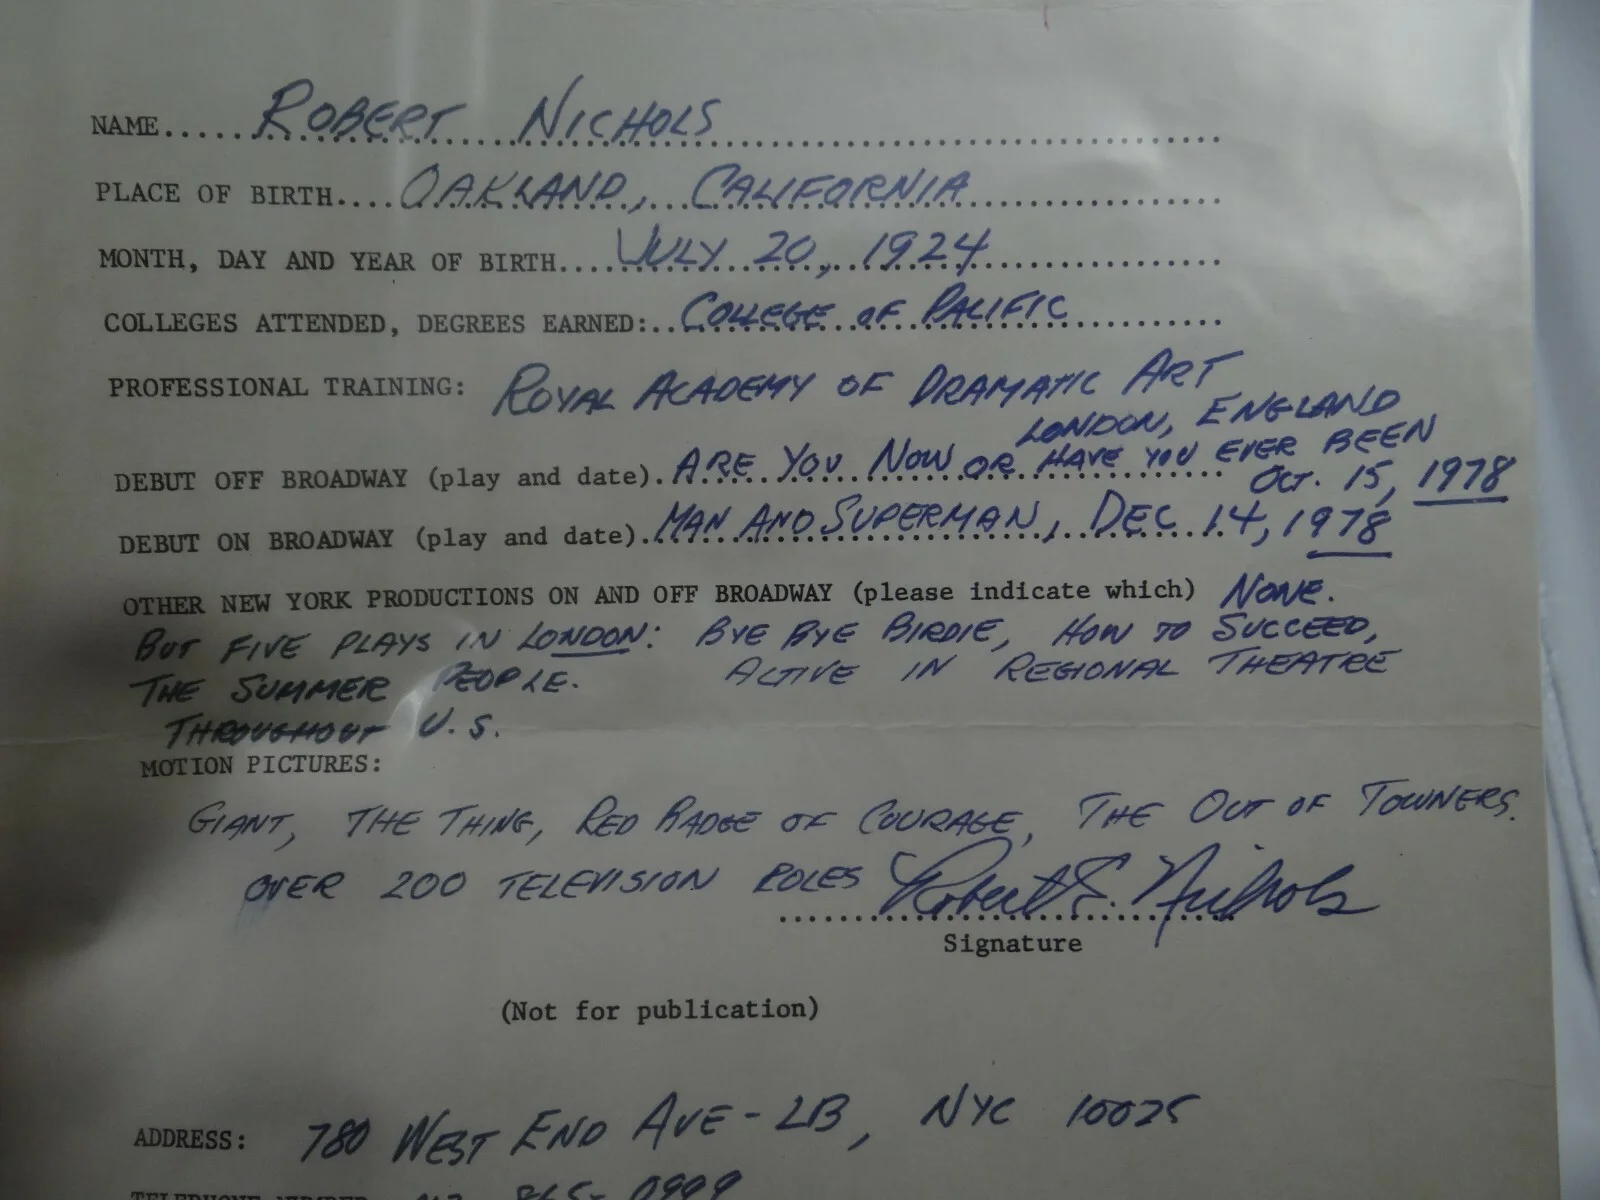 NAME..... ROBERT NICHOLS
PLACE OF BIRTH.... OAKLAND, CALIFORNIA
MONTH, DAY AND YEAR OF BIRTH.... JULY 20, 1924
COLLEGES ATTENDED, DEGREES EARNED:.. COLLEGE OF PACIFIC
PROFESSIONAL TRAINING: ROYAL ACADEMY OF DRAMATIC ART
LONDON, ENGLAND
DEBUT OFF BROADWAY (play and date). ARE YOU NOW OR HAVE YOU EVER BEEN
OCT. 15, 1978
DEBUT ON BROADWAY (play and date). MAN AND SUPERMAN, DEC 14, 1978
OTHER NEW YORK PRODUCTIONS ON AND OFF BROADWAY (please indicate which) NONE.
BUT FIVE PLAYS IN LONDON: BYE BYE BIRDIE, HOW TO SUCCEED,
THE SUMMER PEOPLE. ACTIVE IN REGIONAL THEATRE
THROUGHOUT U.S.
MOTION PICTURES:
GIANT, THE THING, RED BADGE OF COURAGE, THE OUT OF TOWNERS.
OVER 200 TELEVISION ROLES Robert E. Nichols
Signature
(Not for publication)
ADDRESS: 780 WEST END AVE - LB, NYC 10025
TELEPHONE NUMBER 865-0999